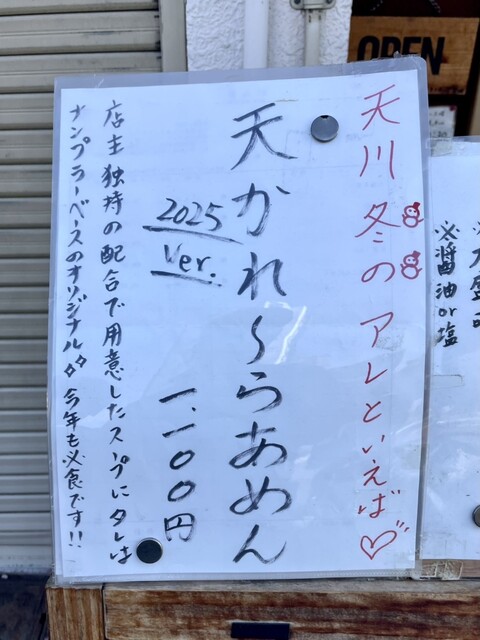 OPEN
天川 冬のアレといえば♡
天かれ~らあめん
2025
Ver.
一、一〇〇円
店主独持の配合で用意したスープにタレは
ナンプラーベースのオリジナル 今年も必食です!!
※醤油or塩